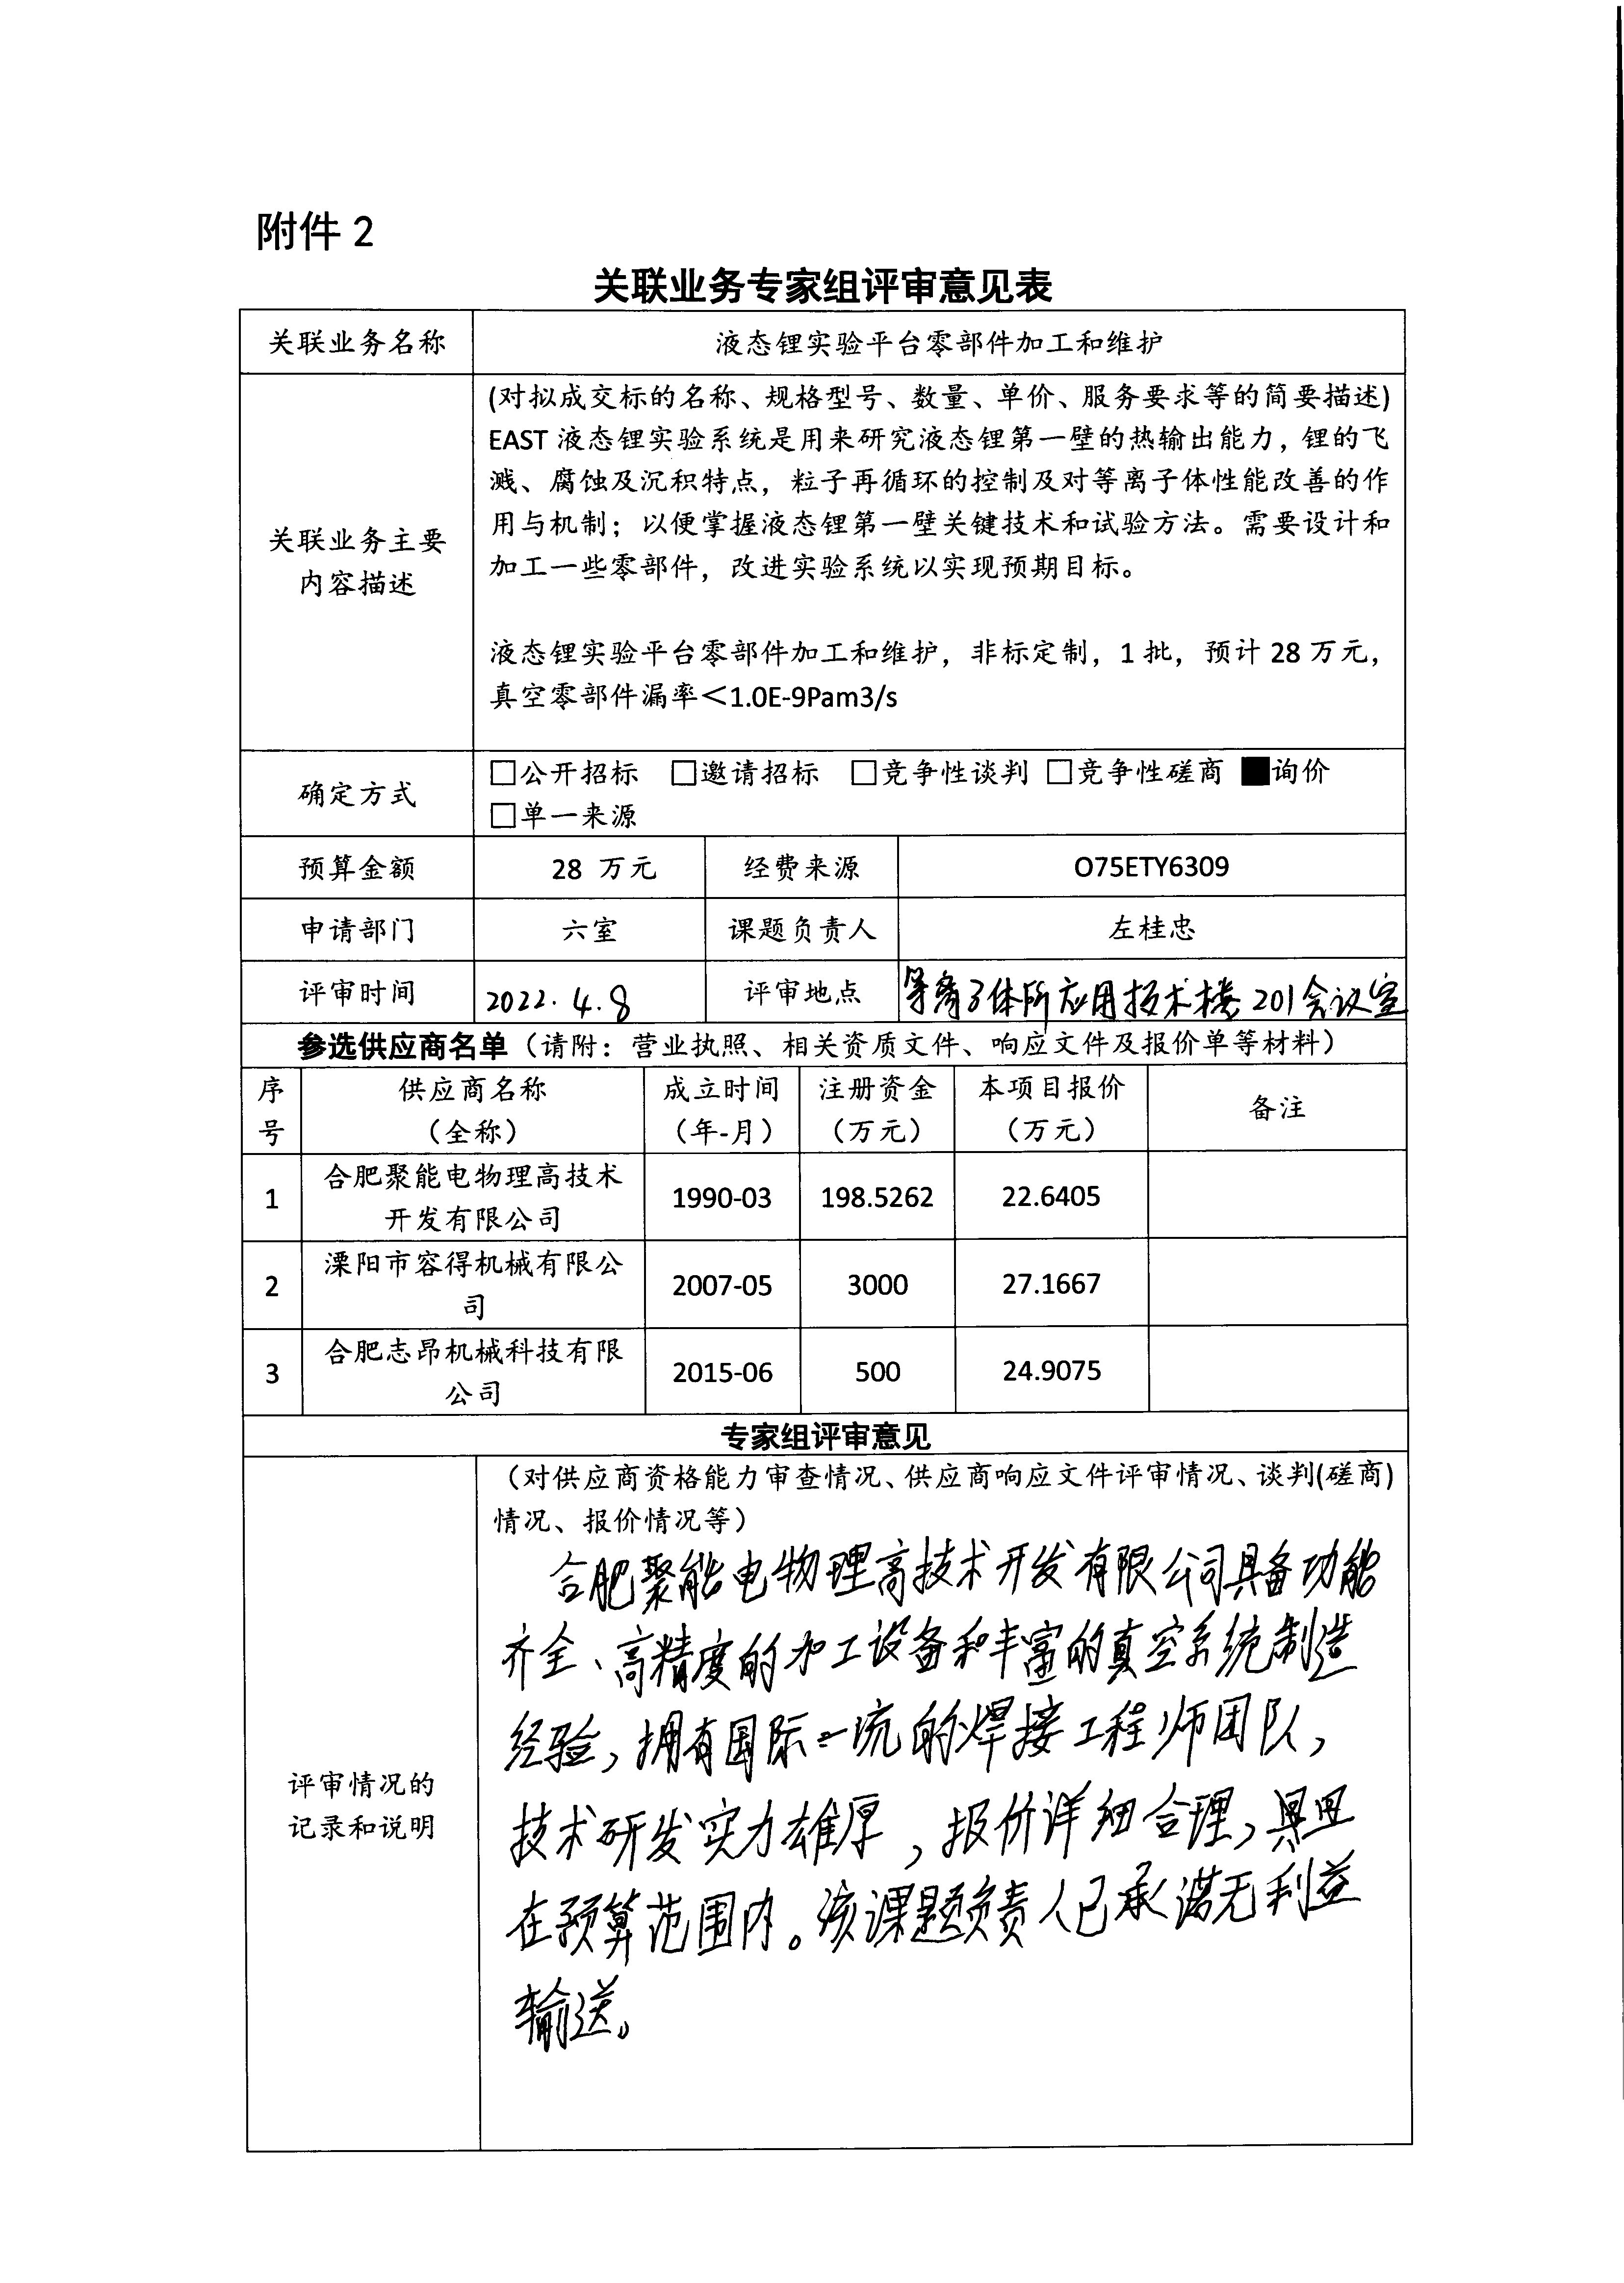 附件 2
关联业务专家组评审意见表
关联业务名称 液态锂实验平台零部件加工和维护
关联业务主要
内容描述
(对拟成交标的名称、规格型号、数量、单价、服务要求等的简要描述)
EAST 液态锂实验系统是用来研究液态锂第一壁的热输出能力，锂的飞
溅、腐蚀及沉积特点，粒子再循环的控制及对等离子体性能改善的作
用与机制；以便掌握液态锂第一壁关键技术和试验方法。需要设计和
加工一些零部件，改进实验系统以实现预期目标。
液态锂实验平台零部件加工和维护，非标定制，1 批，预计 28 万元，
真空零部件漏率＜1.0E-9Pam3/s
确定方式
□公开招标 □邀请招标 □竞争性谈判 □竞争性磋商 ■询价
□单一来源
预算金额 28 万元 经费来源 O75ETY6309
申请部门 六室 课题负责人 左桂忠
评审时间 2022.4.8 评审地点 等离子体所应用技术楼201会议室
参选供应商名单（请附：营业执照、相关资质文件、响应文件及报价单等材料）
序
号
供应商名称
（全称）
成立时间
（年-月）
注册资金
（万元）
本项目报价
（万元）
备注
1
合肥聚能电物理高技术
开发有限公司
1990-03 198.5262 22.6405
2
溧阳市容得机械有限公
司
2007-05 3000 27.1667
3
合肥志昂机械科技有限
公司
2015-06 500 24.9075
专家组评审意见
评审情况的
记录和说明
（对供应商资格能力审查情况、供应商响应文件评审情况、谈判(磋商)
情况、报价情况等）
合肥聚能电物理高技术开发有限公司具备功能
齐全、高精度的加工设备和丰富的真空系统制造
经验，拥有国际一流的焊接工程师团队，
技术研发实力雄厚，报价详细合理，且
在预算范围内。该课题负责人已承诺无利益
输送。